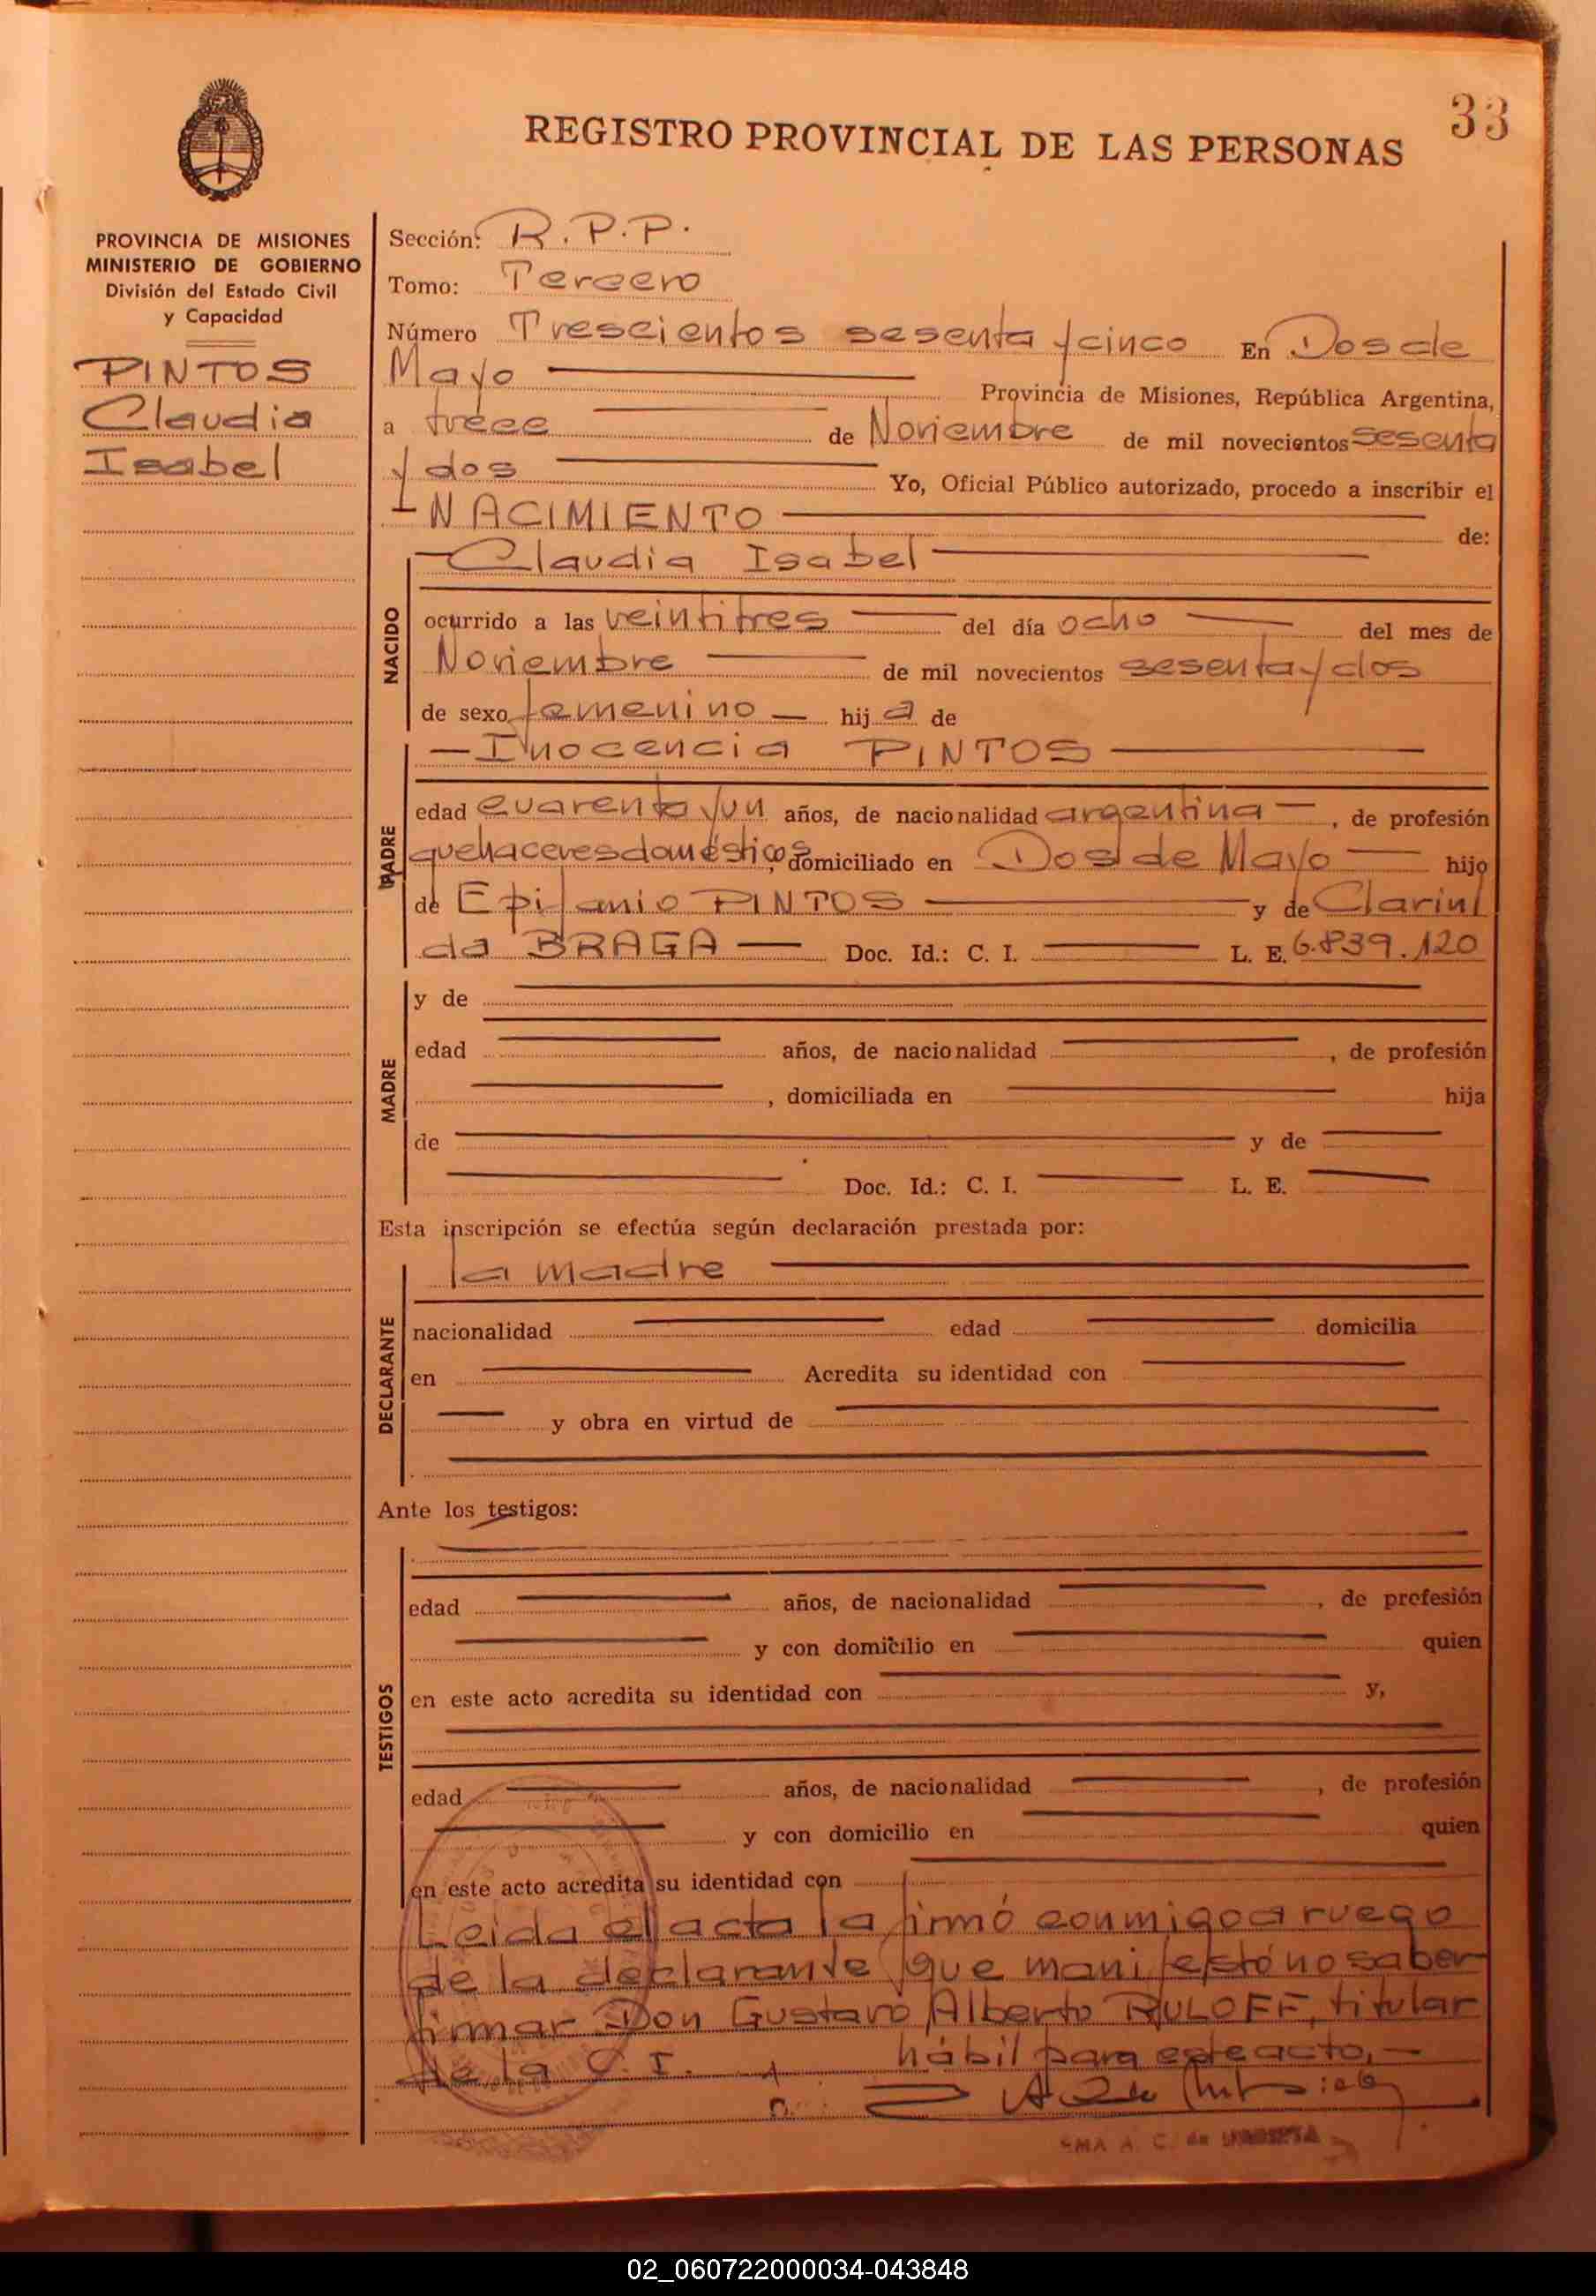 33
REGISTRO PROVINCIAL DE LAS PERSONAS
PROVINCIA DE MISIONES
MINISTERIO DE GOBIERNO
División del Estado Civil
y Capacidad
PINTOS
Claudia
Isabel
Sección: R.P.P.
Tomo: Tercero
Número Trescientos sesenta y cinco En Dos de
Mayo Provincia de Misiones, República Argentina,
a trece de Noviembre de mil novecientos sesenta
y dos Yo, Oficial Público autorizado, procedo a inscribir el
NACIMIENTO de:
Claudia Isabel
NACIDO
ocurrido a las veintitres del día ocho del mes de
Noviembre de mil novecientos sesenta y dos
de sexo femenino hij a de
Inocencia PINTOS
edad cuarenta y un años, de nacionalidad argentina, de profesión
quehaceres domésticos, domiciliado en Dos de Mayo hijo
de Epifanio PINTOS y de Clarin
da BRAGA Doc. Id.: C. I. L. E. 6.839.120
MADRE
y de
edad años, de nacionalidad , de profesión
, domiciliada en hija
de y de
Doc. Id.: C. I. L. E.
Esta inscripción se efectúa según declaración prestada por:
la madre
DECLARANTE
nacionalidad edad domicilia
en Acredita su identidad con
y obra en virtud de
Ante los testigos:
TESTIGOS
edad años, de nacionalidad , de profesión
y con domicilio en quien
en este acto acredita su identidad con y,
edad años, de nacionalidad , de profesión
y con domicilio en quien
en este acto acredita su identidad con
Leida el acta la firmó conmigo a ruego
de la declarante que manifestó no saber
firmar Don Gustavo Alberto RULOFF, titular
de la C. I. hábil para este acto,
02_060722000034-043848